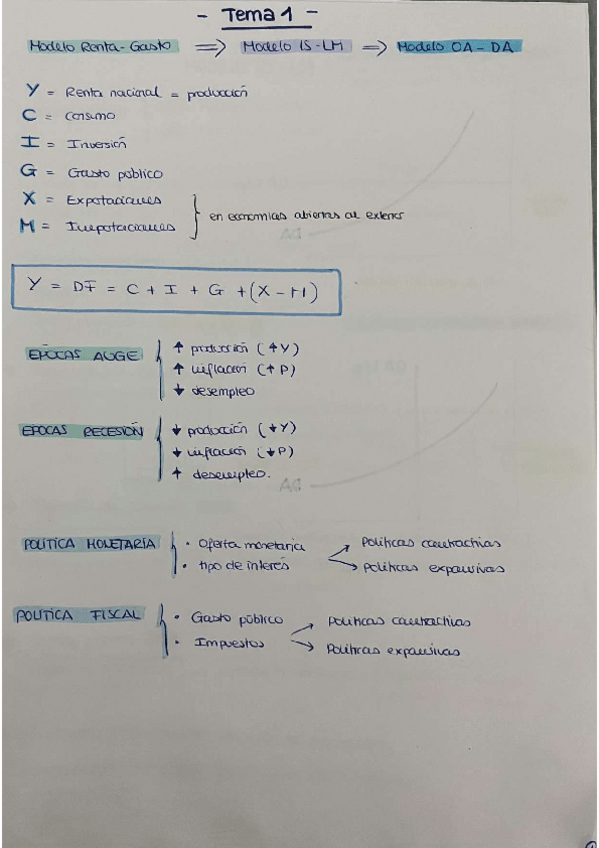 - Tema 1 -
Modelo Renta-Gasto => Modelo IS-LM => Modelo OA-DA
Y = Renta nacional = producción
C = Consumo
I = Inversión
G = Gasto público
X = Expotaciones
M = Impotaciones } en economías abiertas al exterior
Y = DF = C + I + G + (X - M)
ÉPOCAS AUGE
↑ producción (↑Y)
↑ inflación (↑P)
↓ desempleo
EPOCAS RECESIÓN
↓ producción (↓Y)
↓ inflación (↓P)
↑ desempleo.
POLÍTICA MONETARÍA
· Oferta monetaria
· tipo de interés
Políticas contractivas
Políticas expansivas
POLITICA FISCAL
· Gasto público
· Impuestos
Políticas contractivas
Políticas expansivas
DA
OA
DA